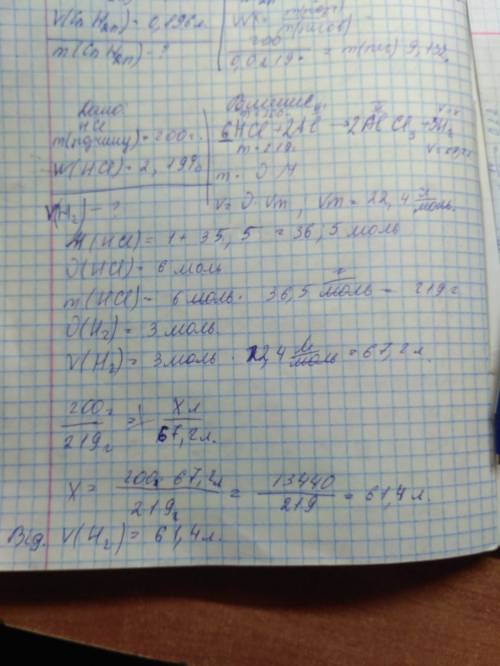 V(Cn H2n) = 0,196 л.
m(Cn H2n) - ?
200
0,0219 = 9,132
Дано:
HCl
m(розчину) = 200 г.
W(HCl) = 2,19%
V(H2) - ?
6HCl + 2Al → 2AlCl3 + 3H2
m = 219
m = ν · M
V = ν · Vm ; Vm = 22,4 л/моль.
M(HCl) = 1 + 35,5 = 36,5 моль
ν(HCl) = 6 моль
m(HCl) = 6 моль · 36,5 г/моль = 219 г
ν(H2) = 3 моль
V(H2) = 3 моль · 22,4 л/моль = 67,2 л.
200 г / 219 г = X л / 67,2 л.
X = 200 г · 67,2 л / 219 г = 13440 / 219 = 61,4 л.
Від. V(H2) = 61,4 л.